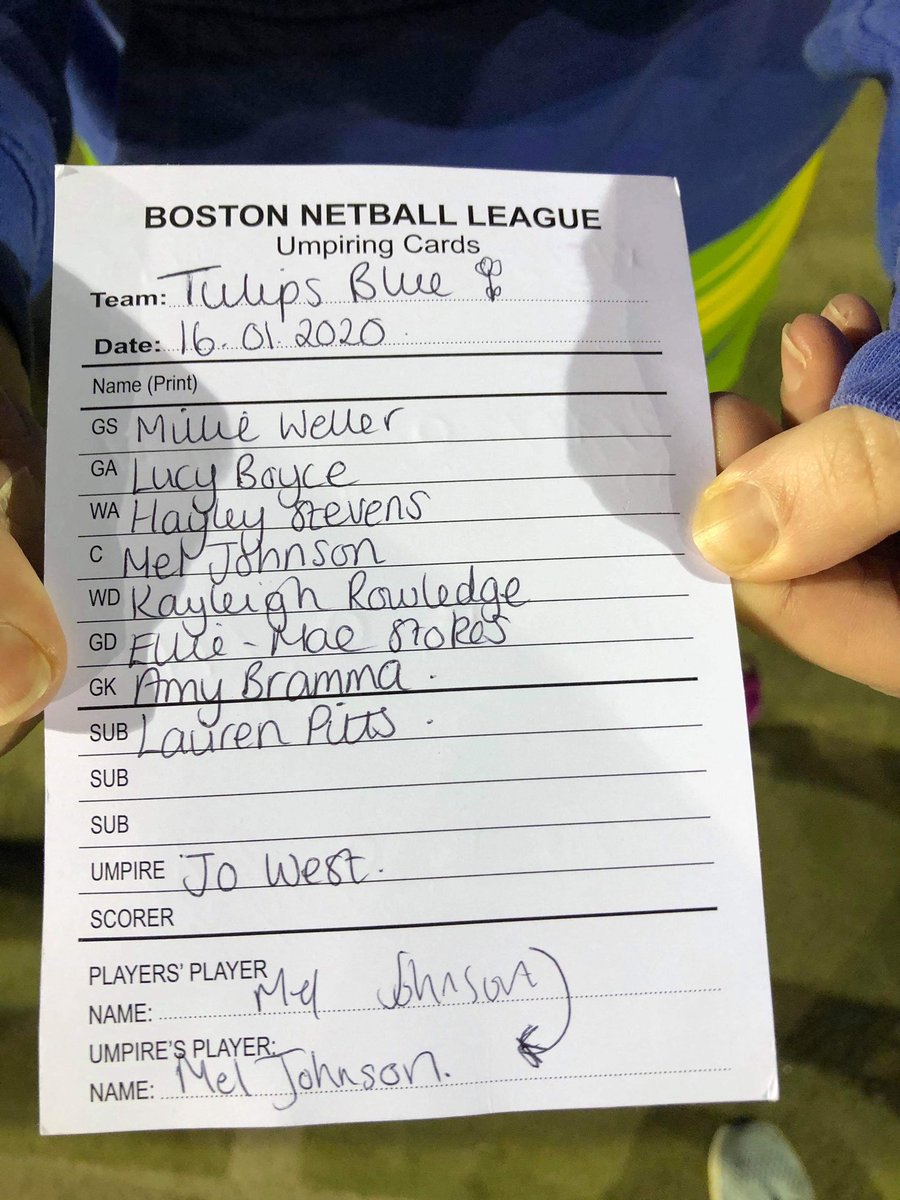 BOSTON NETBALL LEAGUE
Umpiring Cards
Team: Tulips Blue
Date: 16.01.2020
Name (Print)
GS Millie Weller
GA Lucy Boyce
WA Hayley Stevens
C Mel Johnson
WD Kayleigh Rowledge
GD Ellie-Mae Stokes
GK Amy Bramma.
SUB Lauren Pitts.
SUB
SUB
UMPIRE Jo West.
SCORER
PLAYERS' PLAYER
NAME: Mel Johnson
UMPIRE'S PLAYER:
NAME: Mel Johnson.